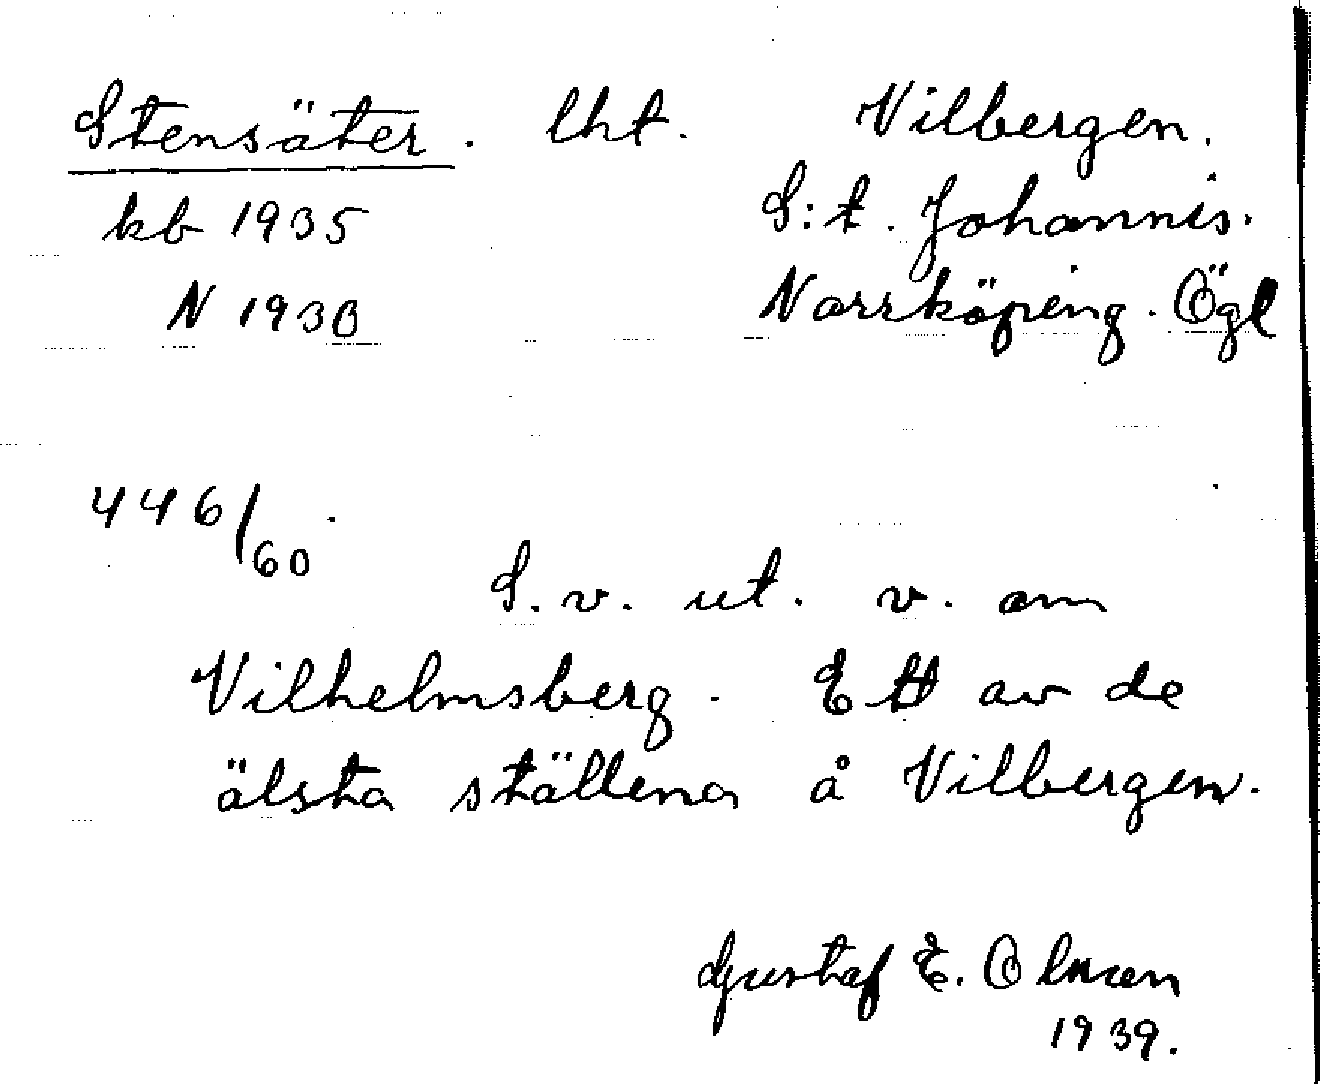 Stensäter. lht. Vilbergen.
kb 1935 S:t. Johannis.
N 1930 Norrköping. Ögl
446/60.
S. v. ut. v. om
Vilhelmsberg. Ett av de
älsta ställena å Vilbergen.
Gustaf E.
1939.